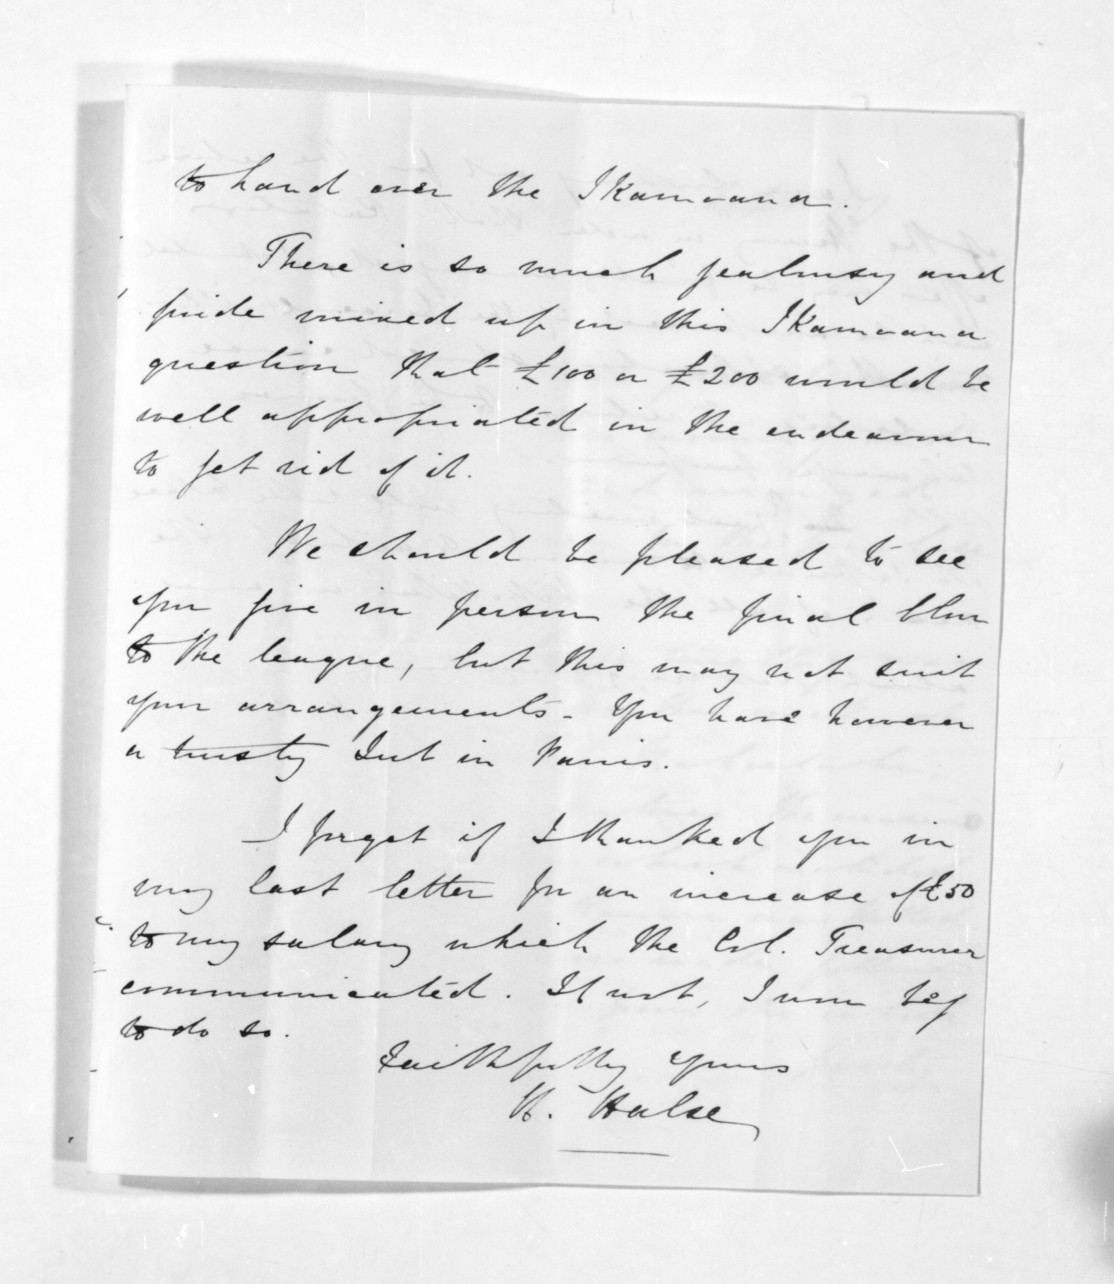 to hand over the Ikamoana.
There is so much jealousy and
pride mixed up in this Ikamoana
question that £100 or £200 would be
well appropriated in the endeavour
to get rid of it.
We should be pleased to see
you give in person the final blow
to the league, but this may not suit
your arrangements - You have however
a trusty Lieut in
I forget if I thanked you in
my last letter for an increase of £50
to my salary which the Col. Treasurer
communicated. If not, I now beg
to do so.
Faithfully yours
H. Halse